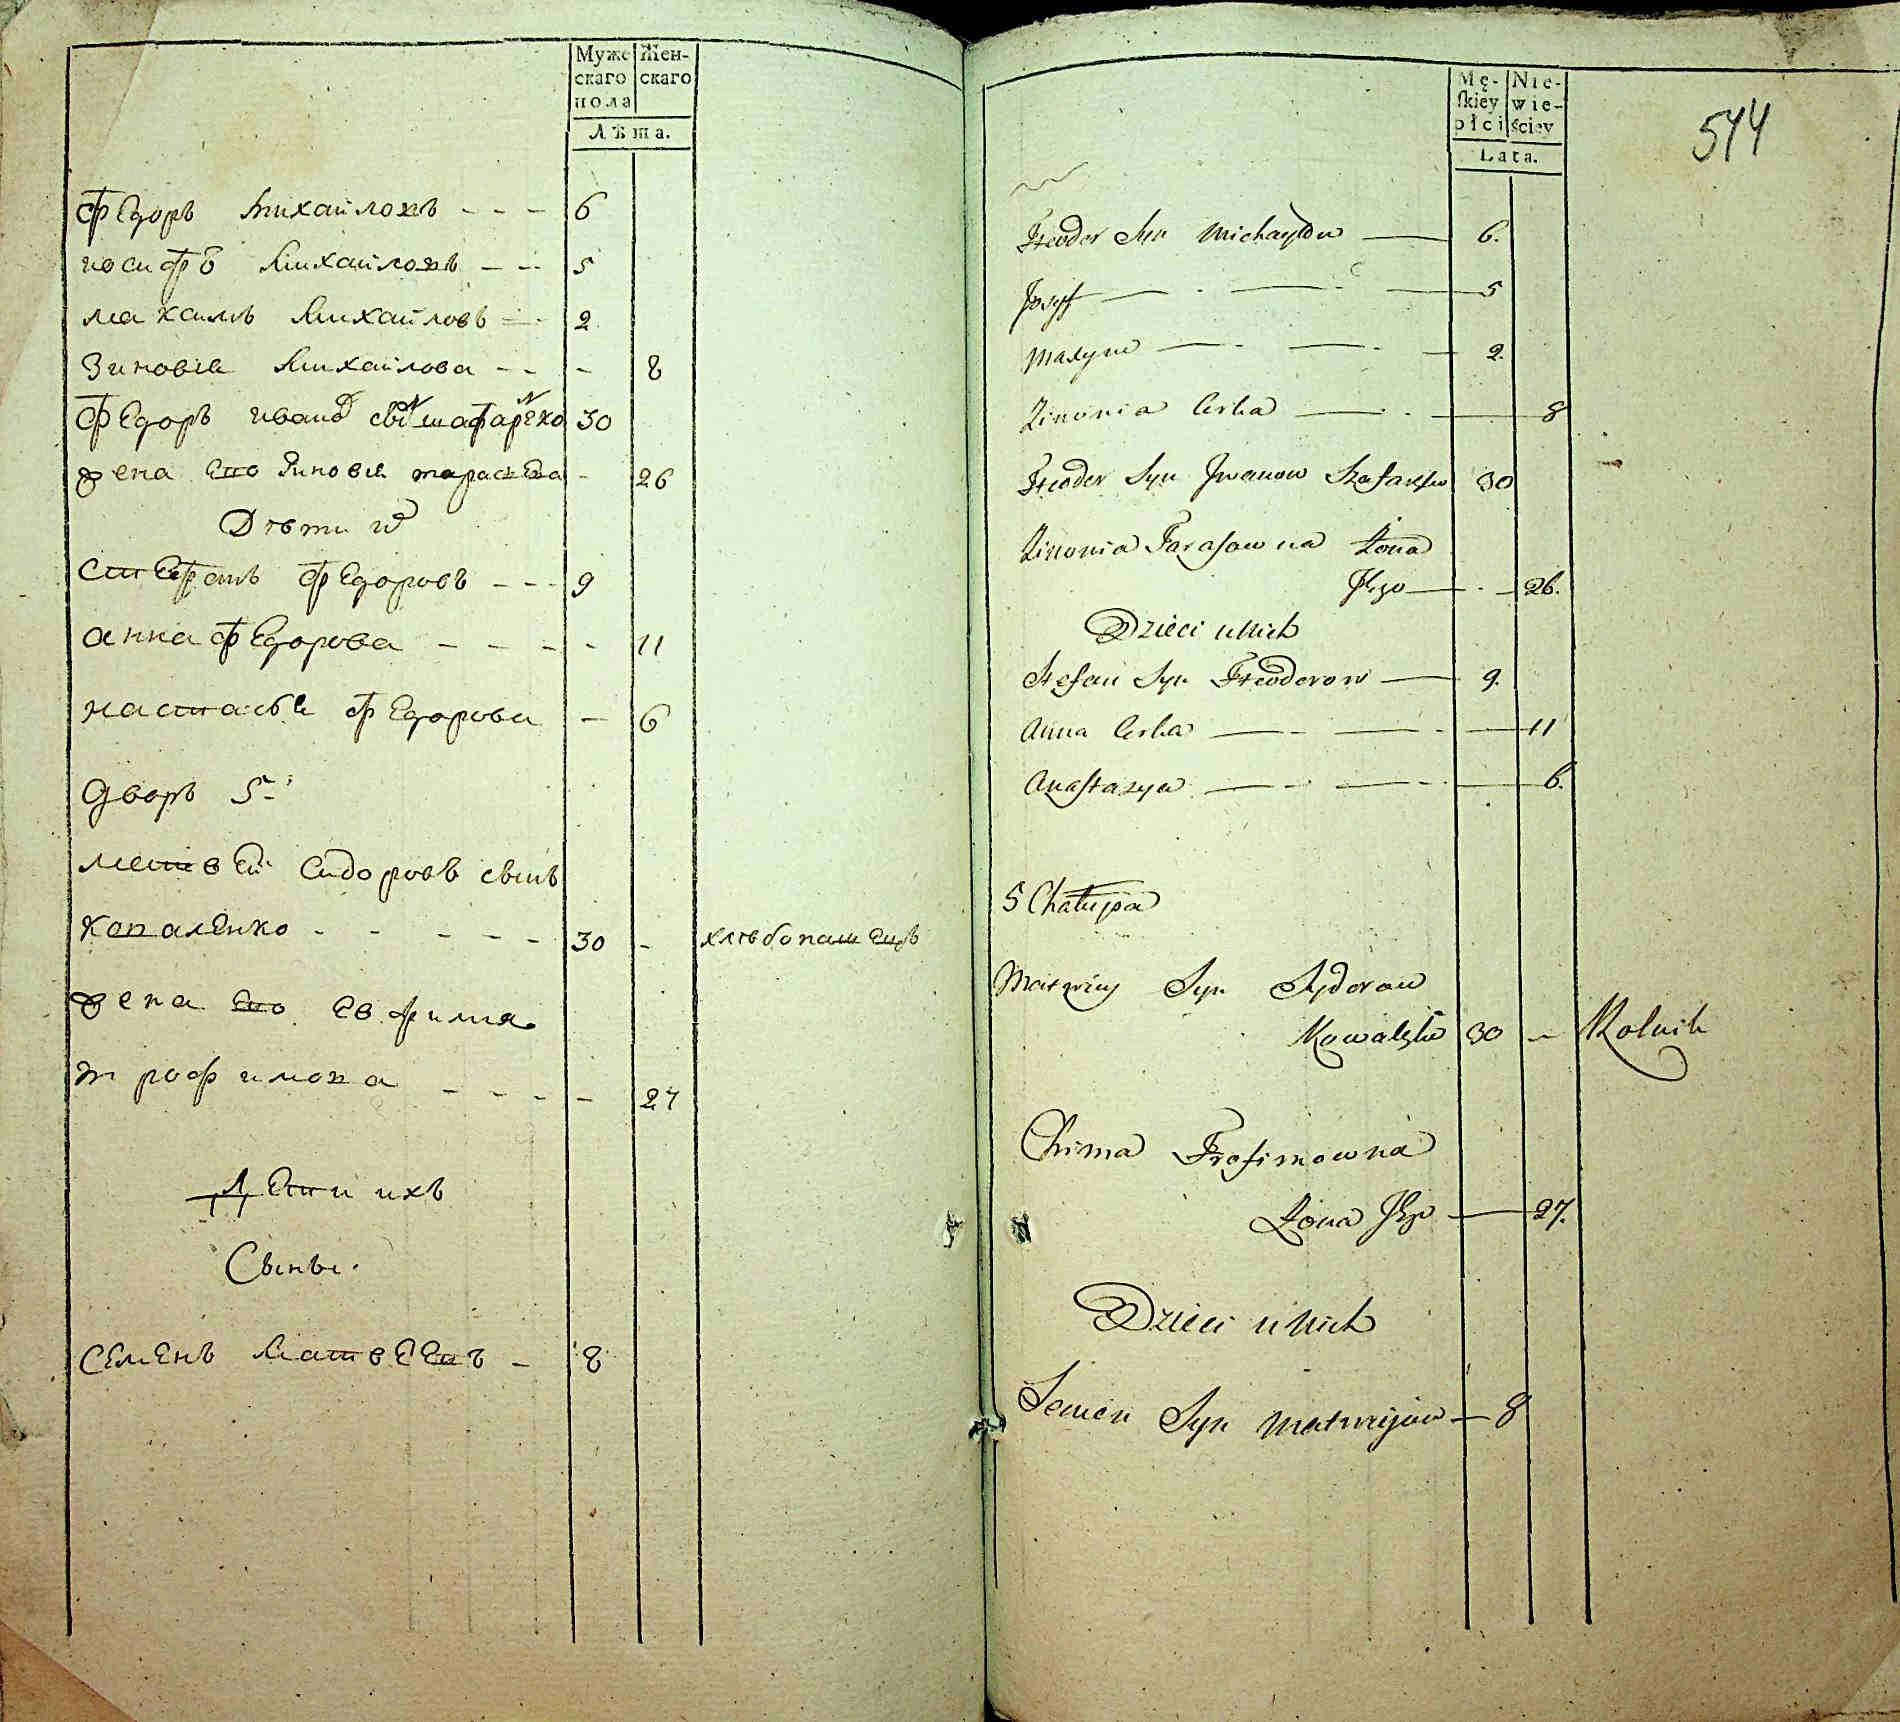 Муже Жен-
скаго скаго
пола
Лѣта.
Федоръ михайловъ - - - 6
иосифъ михайловъ - - 5
макси­мъ михайловъ - - 2
Зиновия михайлова - - - 8
Федоръ ивановъ снъ шафаренко 30
жена его Зиновия тарасова - 26
Дѣти их
Стефанъ Федоровъ - - - 9
анна Федорова - - - - 11
настасья Федорова - 6
дворъ 5-й
матвей Сидоровъ сынъ
коваленко - - - - - 30 - хлѣбопашецъ
жена его евфимия
трофимова - - - - 27
Дети ихъ
Сыны.
Семенъ Матвеевъ - 8
Mę- Nie-
skiey wie-
płci ściey
Lata.
544
Fteodor Syn Michayłow — 6.
Josyff — - — - — 5
Maxym — - — - — 2.
Zinowia Corka — - — 8
Fteodor Syn Iwanow Szafaręko 30
Zinowia Tarasowna Żona
Jego — - — 26.
Dzieci u Nich
Stefan Syn Fteodorow — 9.
Anna Corka — - — - — 11
Anastazya — - — - — 6.
5 Chałupa
Matwiey Syn Sydorow
Kowalęko 30 - Rolnik
Chima Trofimowna
Żona Jego — 27.
Dzieci u Nich
Semen Syn Matwijow — 8